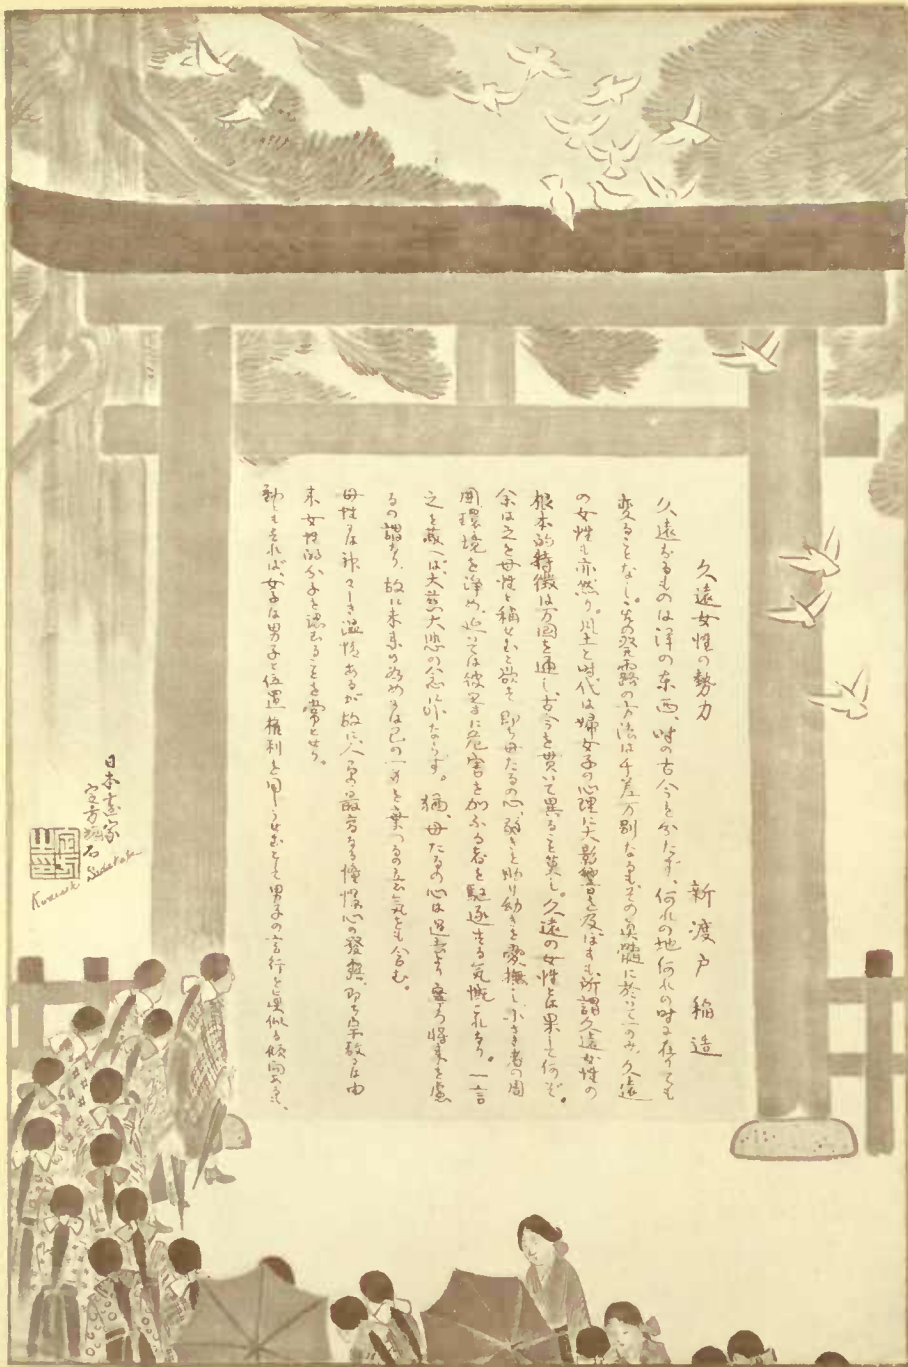 久遠女性の勢力
新渡戸稲造
久遠なるものは洋の東西、時の古今を分たず、何れの地何れの時に在りても
変ることなし。其の発露の方法は千差万別なるも、その真髄に於いてのみ、久遠
の女性も亦然り。風土と時代は婦女子の心理に大影響を及ぼすも、所謂久遠女性の
根本的特徴は万国を通し、古今を貫いて異ること莫し。久遠の女性とは果して何ぞ。
余は之を母性と稱せむと欲す 即ち母たるの心、弱きを助け幼きを愛撫し、小さき者の周
囲環境を浄め、延いては彼等に危害を加ふる者を駆逐する気慨これなり。一言
之を蔽へば、大慈大悲の念に外ならず。猶、母たるの心は過去より寧ろ将来を慮
るの謂なり、故に未来の為めには己の一命を棄つるの勇気をも含む。
母性には神々しき温情あるが故に、人間の最高なる憧憬心の發露、即ち宗教には由
来女性的分子を認むることを常とせり。
動もすれば、女子は男子と位置権利を同うせむとて男子の言行を真似る傾向あるも、
日本畫家
宮方
石
Sadakata